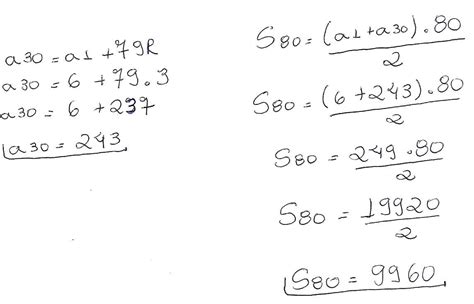 a30 = a1 + 79R
a30 = 6 + 79.3
a30 = 6 + 237
a30 = 243
S80 = (a1 + a30) . 80
2
S80 = (6 + 243) . 80
2
S80 = 249 . 80
2
S80 = 19920
2
S80 = 9960